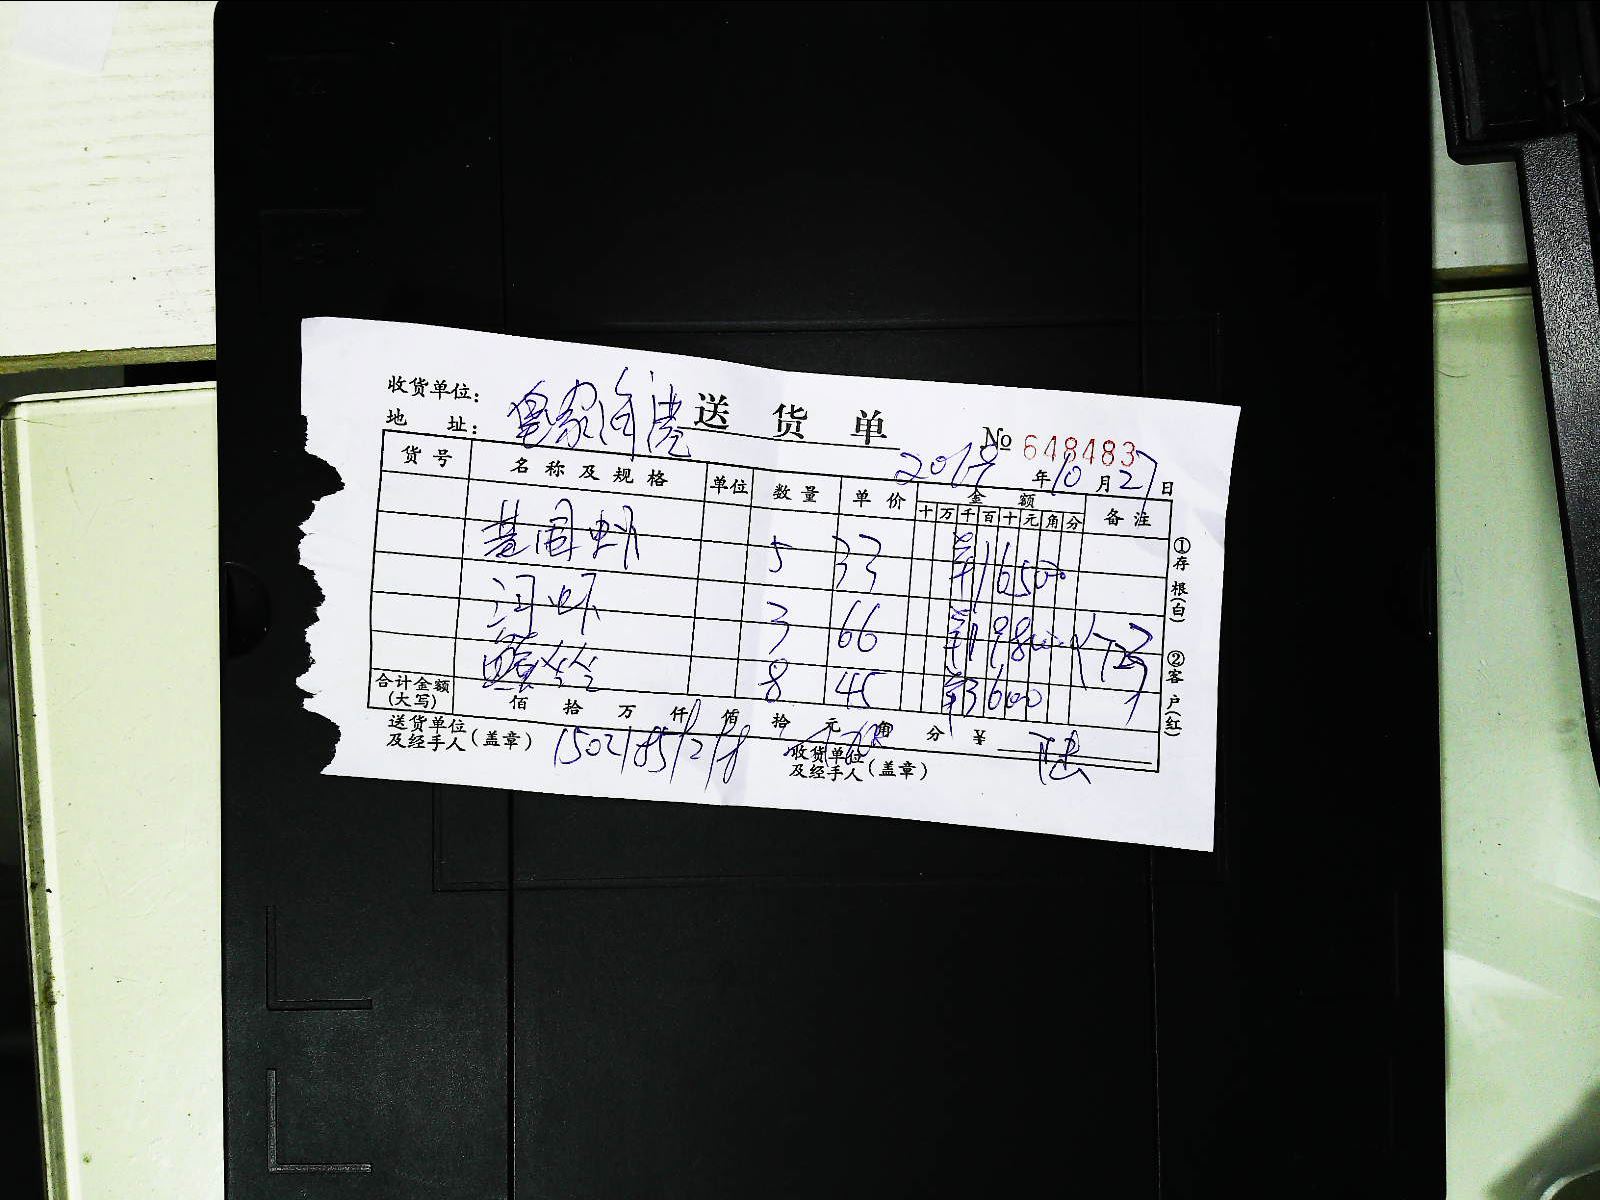 收货单位：皇家海湾
送货单
地 址：
№ 648483
2018年10月27日
货号 名称及规格 单位 数量 单价 金额 备注
十 万 千 百 十 元 角 分
基围虾 5 33 ¥165.00
河虾 3 66 ¥198.00 (723)
8 45 ¥360.00
合计金额(大写) 佰 拾 万 仟 佰 拾 元 角 分 ¥
送货单位及经手人(盖章) 15021851218
收货单位及经手人(盖章)
①存根(白)
②客户(红)